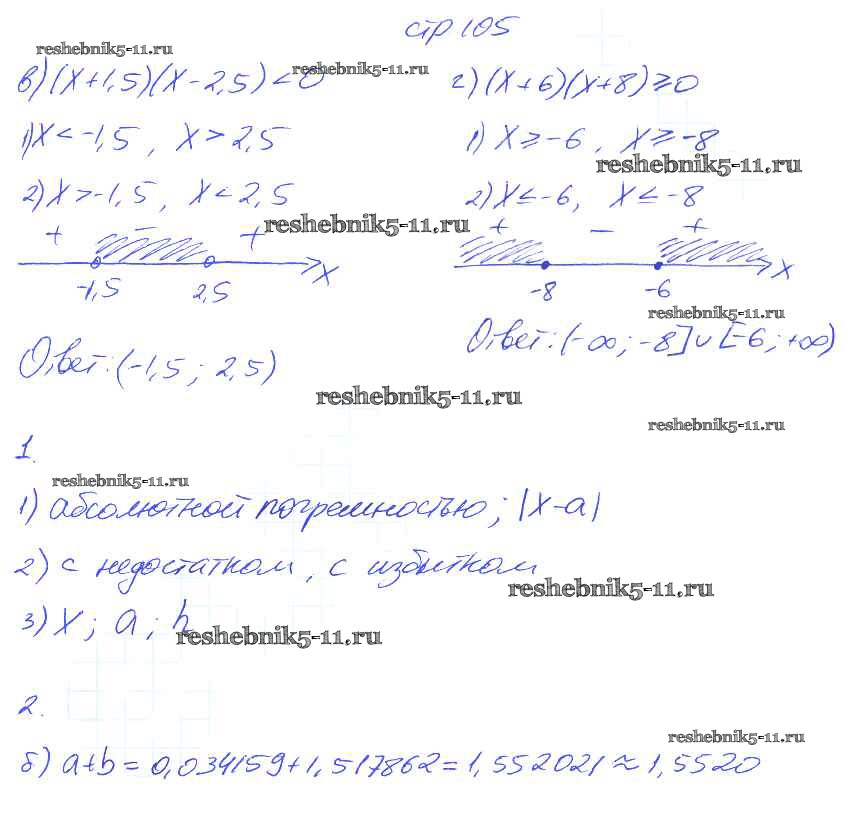 стр 105
reshebnik5-11.ru
в) (x+1,5)(x-2,5)<0
reshebnik5-11.ru
1) x<-1,5, x>2,5
2) x>-1,5, x<2,5
+ - +
-1,5 2,5 x
Ответ: (-1,5; 2,5)
г) (x+6)(x+8)≥0
1) x≥-6, x≥-8
reshebnik5-11.ru
2) x≤-6, x≤-8
reshebnik5-11.ru
+ - +
-8 -6 x
reshebnik5-11.ru
Ответ: (-∞; -8]∪[-6; +∞)
reshebnik5-11.ru
reshebnik5-11.ru
1.
reshebnik5-11.ru
1) абсолютной погрешностью; |x-a|
2) с недостатком, с избытком
reshebnik5-11.ru
3) x; a; h
reshebnik5-11.ru
2.
reshebnik5-11.ru
б) a+b=0,034159+1,517862=1,552021≈1,5520